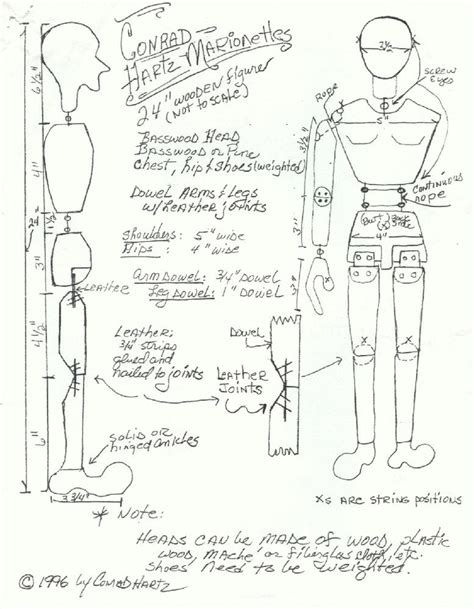 CONRAD
HARTZ MARIONETTES
24" wooden figure
(NOT to scale)
BASSWOOD HEAD
BASSWOOD OR PINE
CHEST, hip & SHOES (weighted)
DOWEL ARMS & LEGS
w/LEATHER JOINTS
SHOULDERS: 5" wide
HIPS: 4" wide
ARM DOWEL: 3/4" DOWEL
LEG DOWEL: 1" DOWEL
6 1/2"
4"
24"
3"
4 1/2"
6"
3 3/4"
LEATHER
LEATHER:
3/4" STRIPS
glued and
nailed to joints
DOWEL
LEATHER
JOINTS
SOLID OR
hinged ANKLES
3 1/2"
SCREW
EYES
ROPE
5"
CONTINUOUS
ROPE
(Butt) Back
(x) Side
4"
x
x
Xs ARE STRING POSITIONS
* NOTE:
HEADS CAN be MADE OF WOOD, plastic
WOOD, MACHÉ or fiberglas cloth, etc.
SHOES need to be weighted.
© 1996 by CONRAD HARTZ